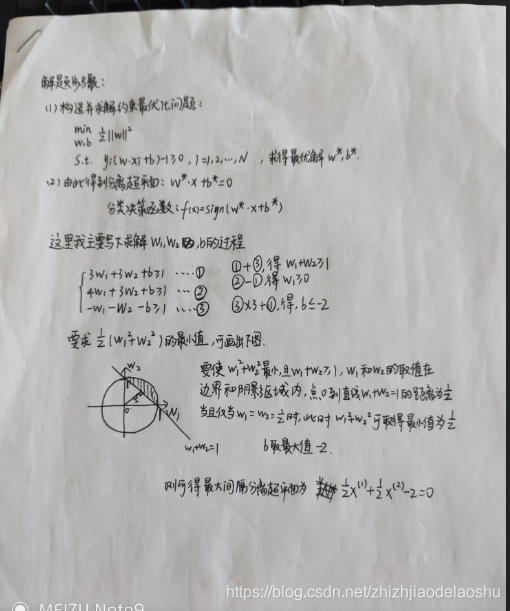 解题步骤:
(1) 构造并求解约束最优化问题:
min w,b ½||w||²
s.t. yi(w·xi+b)-1≥0, i=1,2,…,N ,求得最优解 w*,b*.
(2) 由此得到分离超平面: w*·x+b*=0
分类决策函数: f(x)=sign(w*·x+b*)
这里我主要写下求解w1,w2,b的过程
3w1+3w2+b≥1 ····① ①+③,得 w1+w2≥1
4w1+3w2+b≥1 ····② ②-①,得 w1≥0
-w1-w2-b≥1 ····③ ③×3+①,得,b≤-2
要求½(w1²+w2²)的最小值,可画出下图.
w2
1
0
1
w1
w1+w2=1
要使w1²+w2²最小,且w1+w2≥1,w1和w2的取值在
边界和阴影区域内,点0到直线w1+w2=1的距离为
当且仅当w1=w2=½时,此时w1²+w2²可取得最小值为½
b取最大值-2.
则可得最大间隔分离超平面为 ½x⁽¹⁾+½x⁽²⁾-2=0
MEIZU Note9
https://blog.csdn.net/zhizhjiaodelaoshu